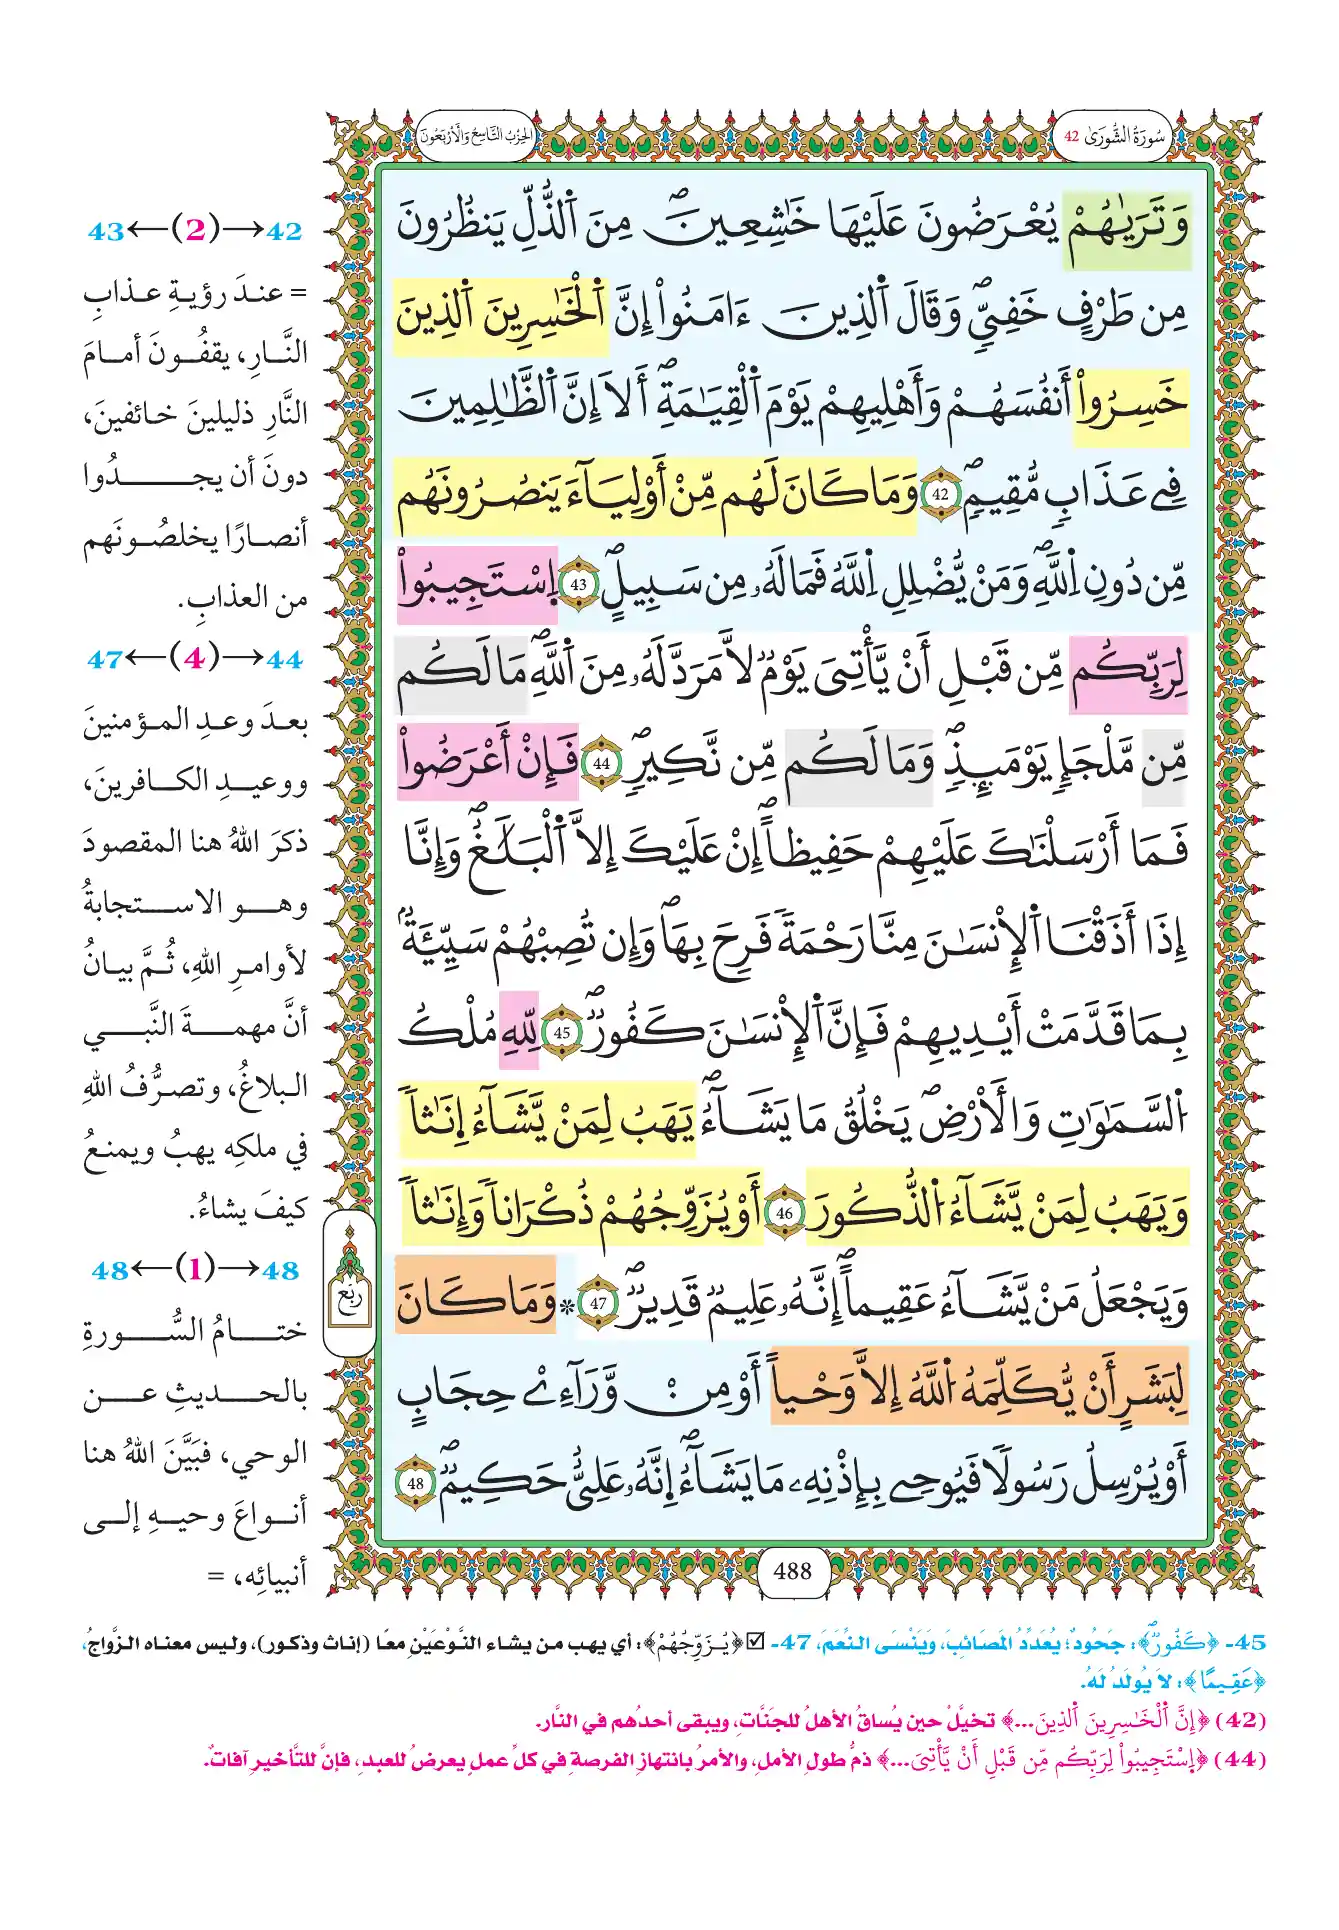 سُورَةُ الشُّورَىٰ 42
الحِزْبُ التَّاسِعُ وَالأَرْبَعُونَ
وَتَرَىٰهُمْ يُعْرَضُونَ عَلَيْهَا خَٰشِعِينَۖ مِنَ اَ۬لذُّلِّ يَنظُرُونَ
مِن طَرْفٍ خَفِيّٖۖ وَقَالَ اَ۬لذِينَ ءَامَنُوٓاْ إِنَّ اَ۬لْخَٰسِرِينَ اَ۬لذِينَ
خَسِرُوٓاْ أَنفُسَهُمْ وَأَهْلِيهِمْ يَوْمَ اَ۬لْقِيَٰمَةِۖ أَلَآ إِنَّ اَ۬لظَّٰلِمِينَ
فِے عَذَابٖ مُّقِيمٖۖ 42 وَمَا كَانَ لَهُم مِّنْ أَوْلِيَآءَ يَنصُرُونَهُم
مِّن دُونِ اِ۬للَّهِۖ وَمَنْ يُّضْلِلِ اِ۬للَّهُ فَمَا لَهُۥ مِن سَبِيلٍۖ 43 اِ۪سْتَجِيبُواْ
لِرَبِّكُم مِّن قَبْلِ أَنْ يَّأْتِيَ يَوْمٞ لَّا مَرَدَّ لَهُۥ مِنَ اَ۬للَّهِۖ مَا لَكُم
مِّن مَّلْجَإٖ يَوْمَئِذٖۖ وَمَا لَكُم مِّن نَّكِيرٖۖ 44 فَإِنْ أَعْرَضُواْ
فَمَآ أَرْسَلْنَٰكَ عَلَيْهِمْ حَفِيظاًۖ إِنْ عَلَيْكَ إِلَّا اَ۬لْبَلَٰغُۖ وَإِنَّآ
إِذَآ أَذَقْنَا اَ۬لْإِنسَٰنَ مِنَّا رَحْمَةٗ فَرِحَ بِهَاۖ وَإِن تُصِبْهُمْ سَيِّئَةُۢ
بِمَا قَدَّمَتْ أَيْدِيهِمْ فَإِنَّ اَ۬لْإِنسَٰنَ كَفُورٞۖ 45 لِّلهِ مُلْكُ
اُ۬لسَّمَٰوَٰتِ وَالْأَرْضِۖ يَخْلُقُ مَا يَشَآءُۖ يَهَبُ لِمَنْ يَّشَآءُ اِ۪نَٰثاٗ
وَيَهَبُ لِمَنْ يَّشَآءُ اُ۬لذُّكُورَ 46 أَوْ يُزَوِّجُهُمْ ذُكْرَاناٗ وَإِنَٰثاٗ
وَيَجْعَلُ مَنْ يَّشَآءُ عَقِيماًۖ إِنَّهُۥ عَلِيمٞ قَدِيرٞۖ 47 * وَمَا كَانَ
لِبَشَرٍ أَنْ يُّكَلِّمَهُ اُ۬للَّهُ إِلَّا وَحْياً أَوْ مِنْ وَّرَآءِےْ حِجَابٍ
أَوْ يُرْسِلُ رَسُولاٗ فَيُوحِے بِإِذْنِهِۦ مَا يَشَآءُۖ إِنَّهُۥ عَلِيٌّ حَكِيمٞۖ 48
42→(2)←43
= عندَ رؤيةِ عذابِ
النَّارِ، يقفُونَ أمامَ
النَّارِ ذليلينَ خائفينَ،
دونَ أن يجدُوا
أنصارًا يخلصُونَهم
من العذابِ.
44→(4)←47
بعدَ وعدِ المؤمنينَ
ووعيدِ الكافرينَ،
ذكرَ اللهُ هنا المقصودَ
وهو الاستجابةُ
لأوامرِ اللهِ، ثُمَّ بيانُ
أنَّ مهمةَ النَّبي
البلاغُ، وتصرُّفُ اللهِ
في ملكِه يهبُ ويمنعُ
كيفَ يشاءُ.
48→(1)←48
ختامُ السُّورةِ
بالحديثِ عن
الوحي، فبَيَّنَ اللهُ هنا
أنواعَ وحيهِ إلى
أنبيائِه، =
ربع
488
45- ﴿كَفُورٞۖ﴾: جَحُودٌ؛ يُعَدِّدُ المَصَائِبَ، وَيَنْسَى النِّعَمَ، 47- ☑ ﴿يُزَوِّجُهُمْ﴾: أي يهب من يشاء النَّوْعَيْنِ معًا (إناث وذكور)، وليس معناه الزَّواجُ،
﴿عَقِيمًا﴾: لَا يُولَدُ لَهُ.
(42) ﴿إِنَّ اَ۬لْخَٰسِرِينَ اَ۬لذِينَ...﴾ تخيَّلْ حين يُساقُ الأهلُ للجَنَّاتِ، ويبقى أحدُهم في النَّارِ.
(44) ﴿اِ۪سْتَجِيبُواْ لِرَبِّكُم مِّن قَبْلِ أَنْ يَّأْتِيَ...﴾ ذمُّ طولِ الأملِ، والأمرُ بانتهازِ الفرصةِ في كلِّ عملٍ يعرضُ للعبدِ، فإنَّ للتَّأخيرِ آفاتٌ.